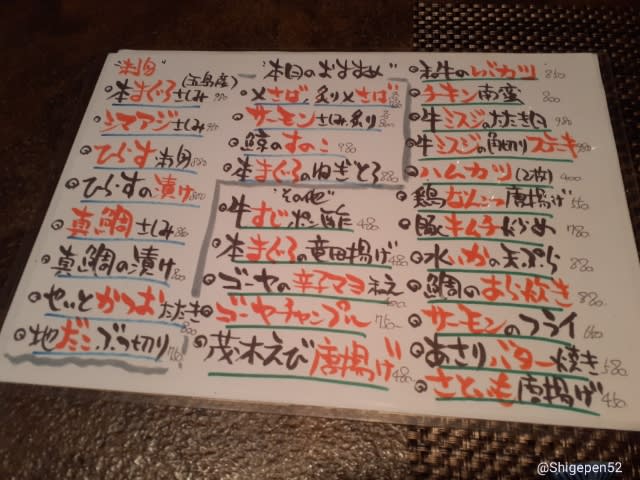 "お刺身"
(五島産)
本まぐろさしみ
シマアジさしみ
ひらすお刺身 880
ひらすの漬け 880
真鯛さしみ
真鯛の漬け
かつおたたき
地だこぶつ切り
"本日のおすすめ"
〆さば、炙り〆さば
サーモンさしみ、炙り
鯨のすのこ 980
本まぐろのねぎとろ 880
"その他"
牛すじポン酢 480
本まぐろの竜田揚げ 480
ゴーヤの辛子マヨ和え
ゴーヤチャンプル 750
茂木えび唐揚げ 480
和牛のレバカツ 850
チキン南蛮 800
牛ミスジのたたき 980
牛ミスジの角切りステーキ
ハムカツ(2枚) 400
鶏なんこつ唐揚げ 550
豚キムチ炒め 780
水いかの天ぷら 880
鯛のあら炊き 880
サーモンのフライ 660
あさりバター焼き 580
さといも唐揚げ 450
@Shigepen52